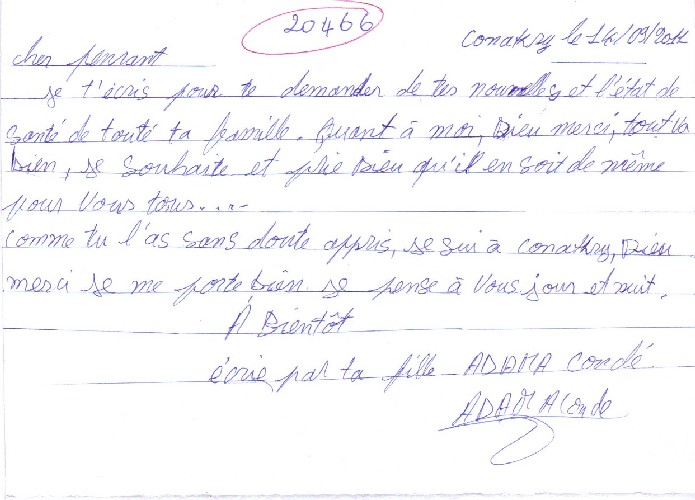 20466
Conakry le 14/09/2011
cher penrant
Je t'écris pour te demander de tes nouvelles et l'état de
santé de touté ta famille. Quant à moi, Dieu merci, tout va
bien, Je souhaite et prie Dieu qu'il en soit de même
pour vous tous....
comme tu l'as sans doute appris, Je sui à conakry, Dieu
merci Je me porte bien Je pense à vous jour et nuit.
À Bientôt
écrie par ta fille ADAMA condé
ADAMA Conde